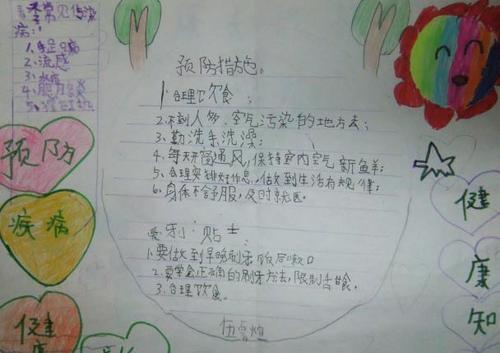 季常见传染
病:
1、手足口病
2、流感
3、水痘
预防
疾病
健康
预防措施。
1、合理饮食;
2、不到人多、空气污染的地方去;
3、勤洗手洗澡;
4、每天开窗通风,保持室内空气新鱼羊;
5、合理安排好作息,做到生活有规律;
6、身体不舒服,及时就医
爱牙小贴士
1、要做到早晚刷牙饭后嗽口
2、要学会正确的刷牙方法,限制甜食。
3、合理饮食。
健
康
知